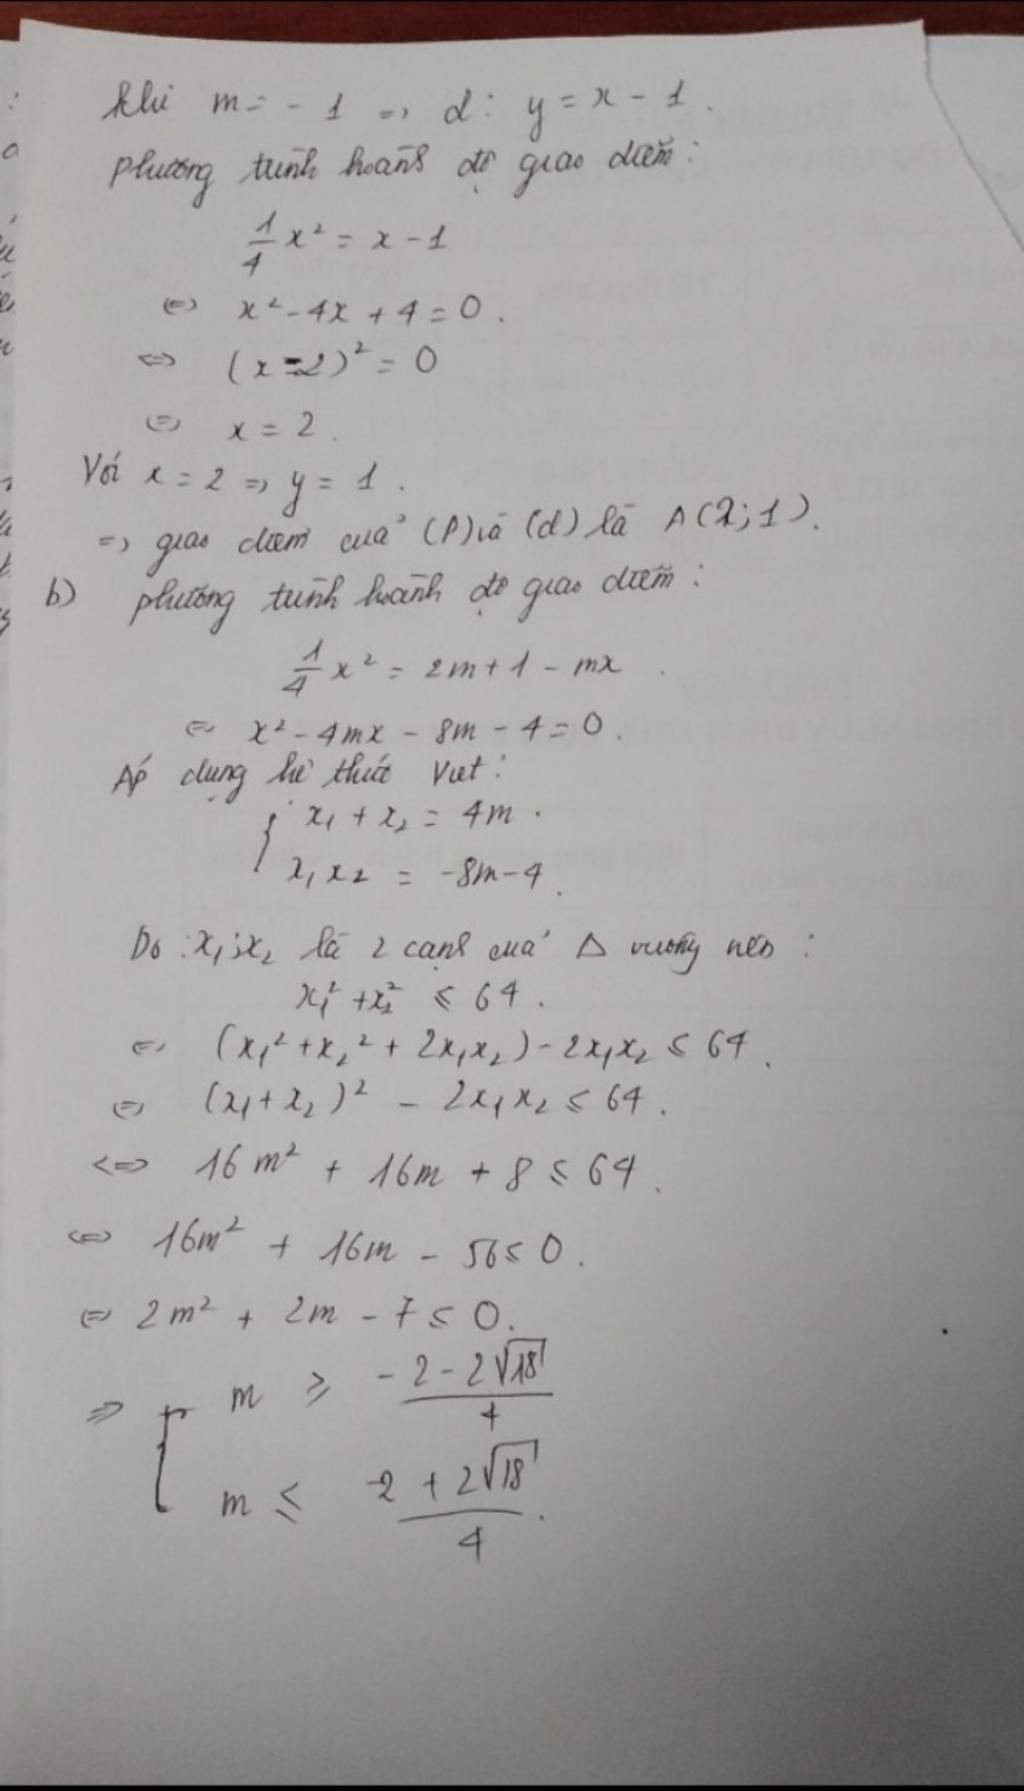 Khi m = - 1 => d: y = x - 1.
phương trình hoành độ giao điểm:
1/4 x² = x - 1
<=> x² - 4x + 4 = 0.
<=> (x - 2)² = 0
<=> x = 2.
Với x = 2 => y = 1.
=> giao điểm của (P) và (d) là A(2;1).
b) phương trình hoành độ giao điểm:
1/4 x² = 2m + 1 - mx
<=> x² - 4mx - 8m - 4 = 0.
Áp dụng hệ thức Viet:
{ x₁ + x₂ = 4m.
x₁x₂ = -8m - 4.
Do : x₁; x₂ là 2 cạnh của Δ vuông nên :
x₁² + x₂² ≤ 64.
<=> (x₁² + x₂² + 2x₁x₂) - 2x₁x₂ ≤ 64.
<=> (x₁ + x₂)² - 2x₁x₂ ≤ 64.
<=> 16m² + 16m + 8 ≤ 64.
<=> 16m² + 16m - 56 ≤ 0.
<=> 2m² + 2m - 7 ≤ 0.
=> [ m ≥ (-2 - 2√18)/4
m ≤ (-2 + 2√18)/4.